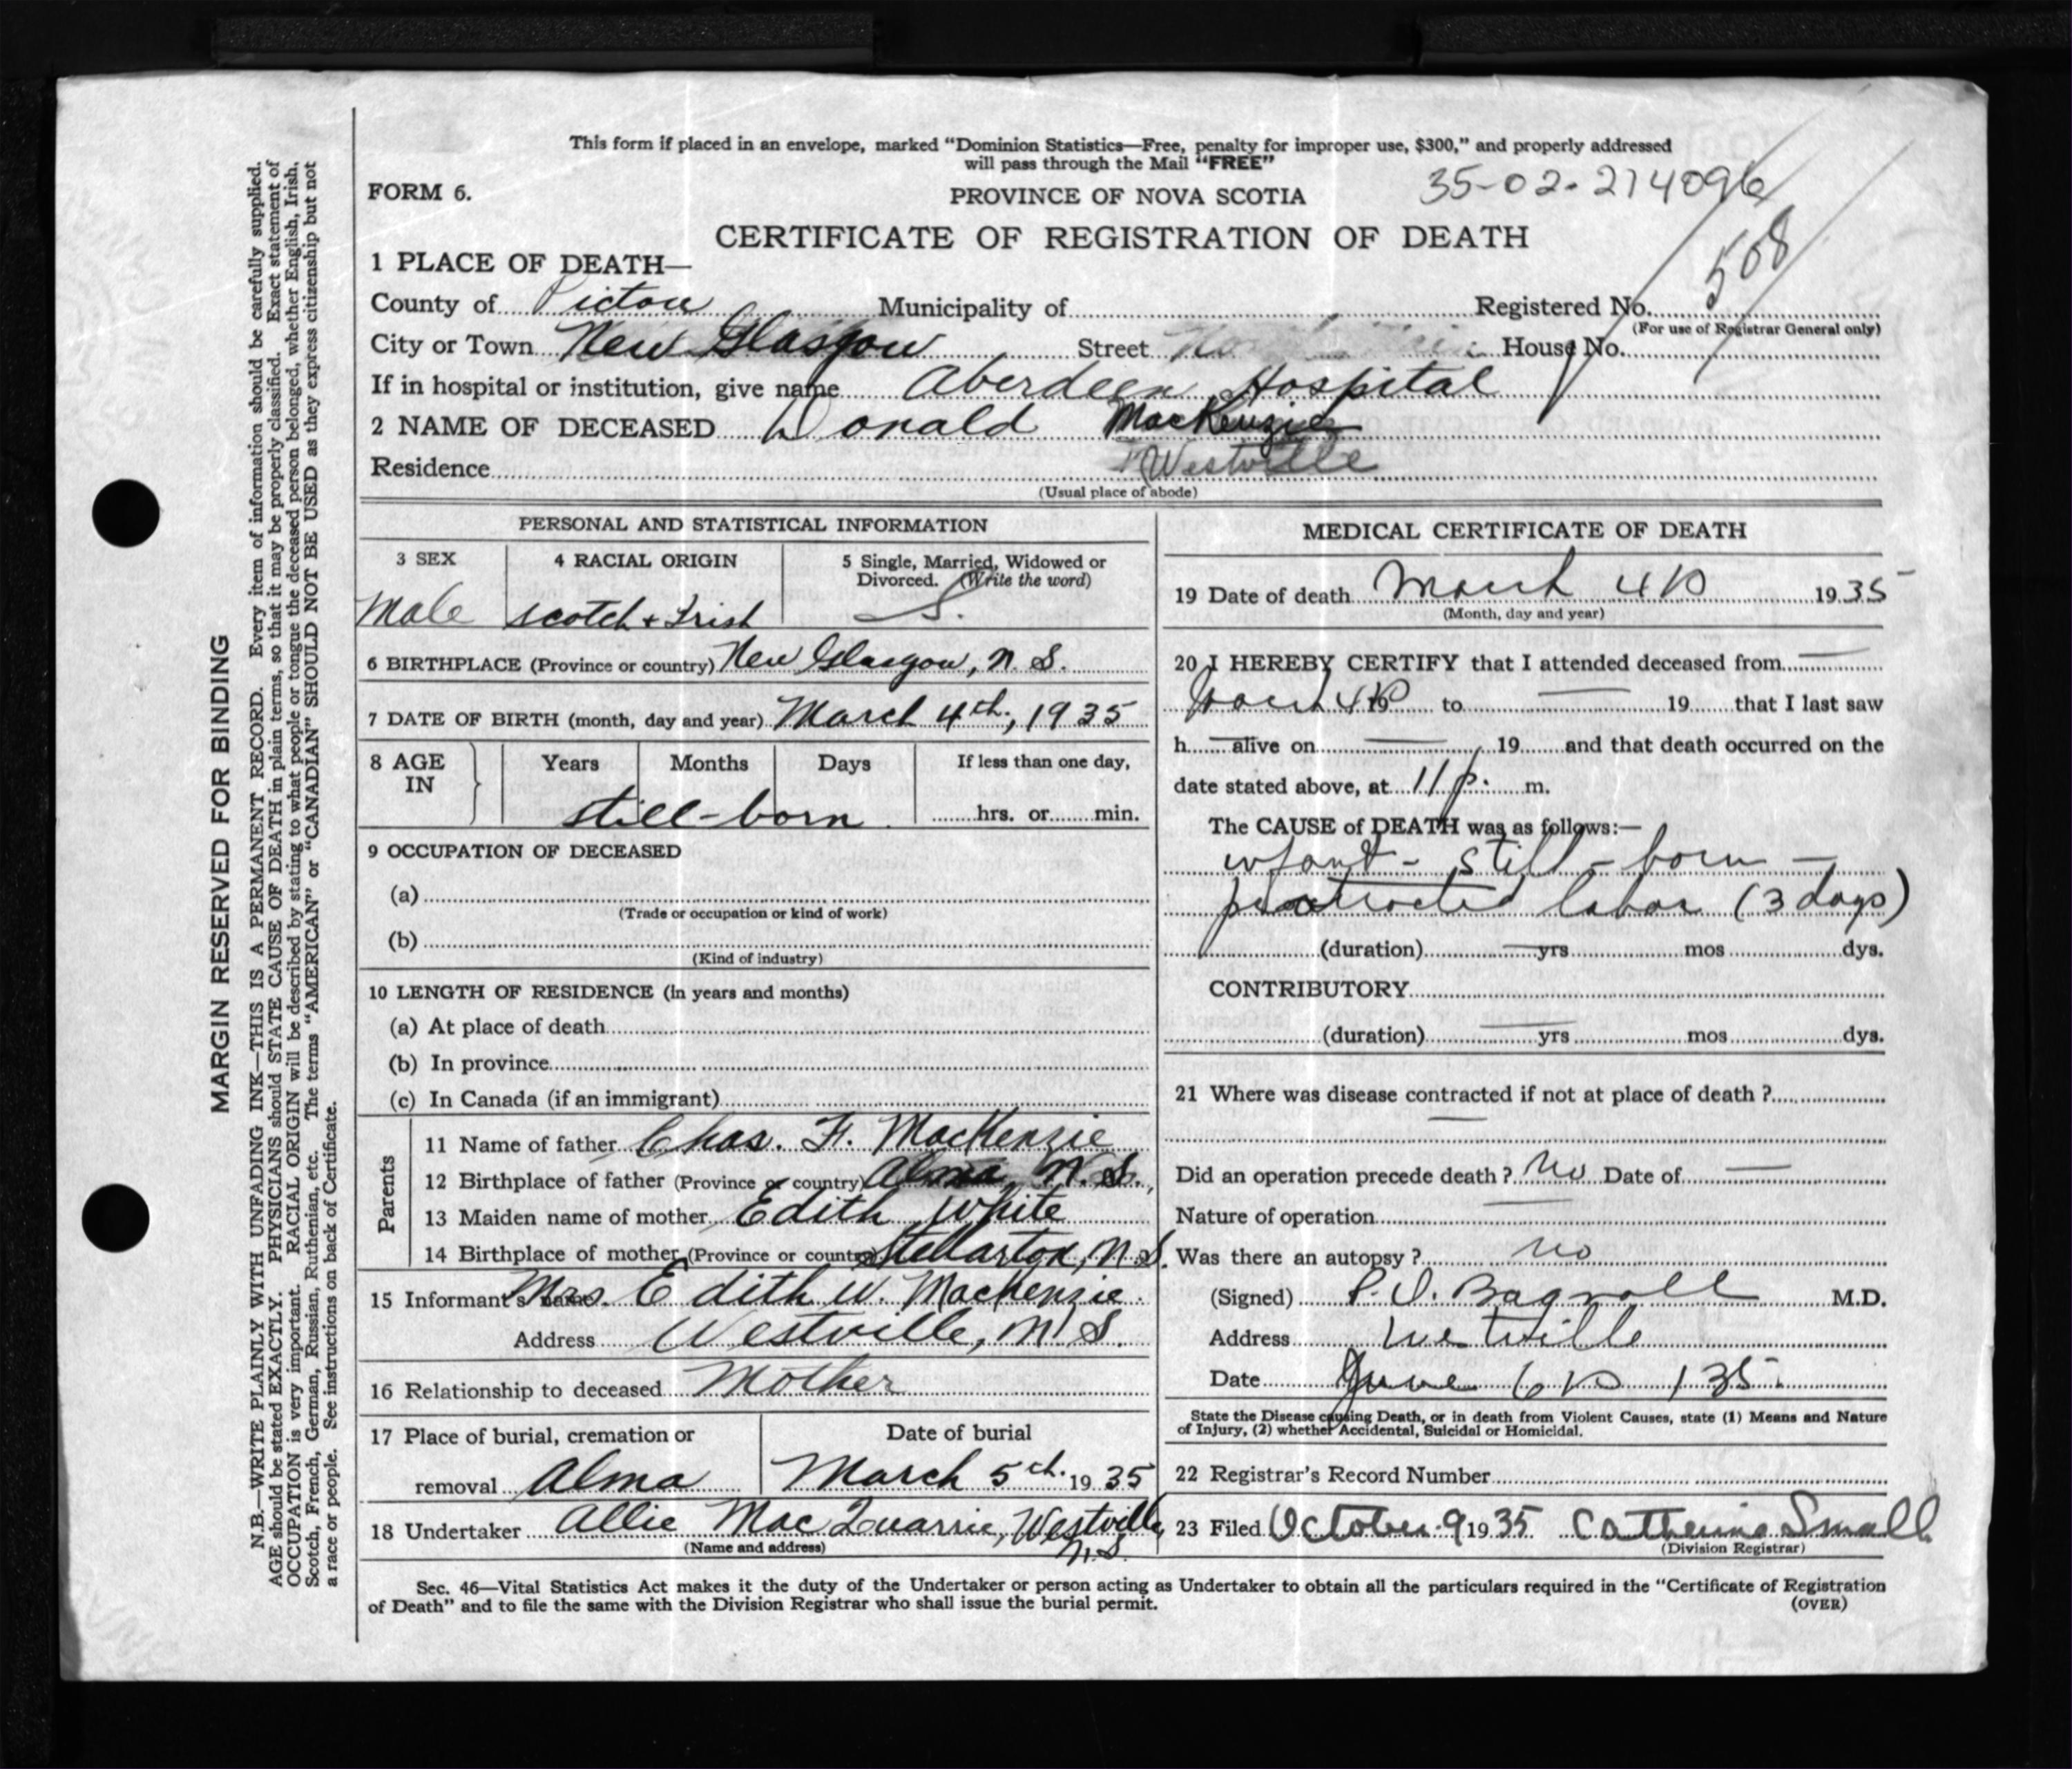 This form if placed in an envelope, marked “Dominion Statistics—Free, penalty for improper use, $300,” and properly addressed
will pass through the Mail “FREE”
FORM 6.
PROVINCE OF NOVA SCOTIA
35-02-214096
CERTIFICATE OF REGISTRATION OF DEATH
508
1 PLACE OF DEATH—
County of Pictou Municipality of Registered No.
(For use of Registrar General only)
City or Town New Glasgow Street House No.
If in hospital or institution, give name Aberdeen Hospital
2 NAME OF DECEASED Donald MacKenzie
Residence Westville
(Usual place of abode)
PERSONAL AND STATISTICAL INFORMATION
3 SEX 4 RACIAL ORIGIN 5 Single, Married, Widowed or
Divorced. (Write the word)
Male Scotch + Irish S.
6 BIRTHPLACE (Province or country) New Glasgow, N. S.
7 DATE OF BIRTH (month, day and year) March 4th, 1935
8 AGE IN Years Months Days If less than one day,
still-born hrs. or min.
9 OCCUPATION OF DECEASED
(a)
(Trade or occupation or kind of work)
(b)
(Kind of industry)
10 LENGTH OF RESIDENCE (in years and months)
(a) At place of death
(b) In province
(c) In Canada (if an immigrant)
Parents
11 Name of father Chas. F. MacKenzie
12 Birthplace of father (Province or country) Alma N. S.
13 Maiden name of mother Edith White
14 Birthplace of mother (Province or country) Stellarton, N.S.
15 Informant's name Mrs. Edith W. MacKenzie
Address Westville, N S.
16 Relationship to deceased Mother
17 Place of burial, cremation or Date of burial
removal Alma March 5th 1935
18 Undertaker Allie MacQuarrie, Westville,
(Name and address) N.S.
MEDICAL CERTIFICATE OF DEATH
19 Date of death March 4th 1935
(Month, day and year)
20 I HEREBY CERTIFY that I attended deceased from —
March 4th 19 to — 19 that I last saw
h — alive on — , 19 and that death occurred on the
date stated above, at 11 p. m.
The CAUSE of DEATH was as follows:—
infant - still-born —
protracted labor (3 days)
(duration) — yrs mos dys.
CONTRIBUTORY
(duration) — yrs mos dys.
21 Where was disease contracted if not at place of death ?
—
Did an operation precede death ? no Date of —
Nature of operation —
Was there an autopsy ? no
(Signed) Bagnall M.D.
Address Westville
Date June 6th 135.
State the Disease causing Death, or in death from Violent Causes, state (1) Means and Nature
of Injury, (2) whether Accidental, Suicidal or Homicidal.
22 Registrar's Record Number
23 Filed October 9 1935 Catherine Small
(Division Registrar)
Sec. 46—Vital Statistics Act makes it the duty of the Undertaker or person acting as Undertaker to obtain all the particulars required in the “Certificate of Registration
of Death” and to file the same with the Division Registrar who shall issue the burial permit.
(OVER)
MARGIN RESERVED FOR BINDING
N.B.—WRITE PLAINLY WITH UNFADING INK—THIS IS A PERMANENT RECORD. Every item of information should be carefully supplied.
AGE should be stated EXACTLY. PHYSICIANS should STATE CAUSE OF DEATH in plain terms, so that it may be properly classified. Exact statement of
OCCUPATION is very important. RACIAL ORIGIN will be described by stating to what people or tongue the deceased person belonged, whether English, Irish,
Scotch, French, German, Russian, Ruthenian, etc. The terms “AMERICAN” or “CANADIAN” SHOULD NOT BE USED as they express citizenship but not
a race or people. See instructions on back of Certificate.